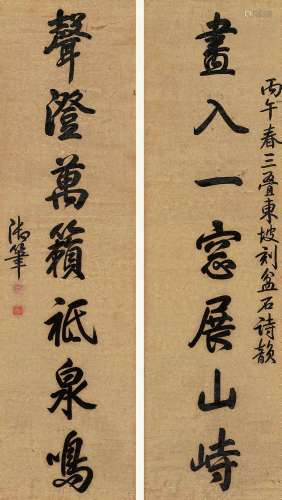 丙午春三叠東坡刻盆石詩韻
畫入一窓展山峙
聲澄萬籟祗泉鳴
御筆